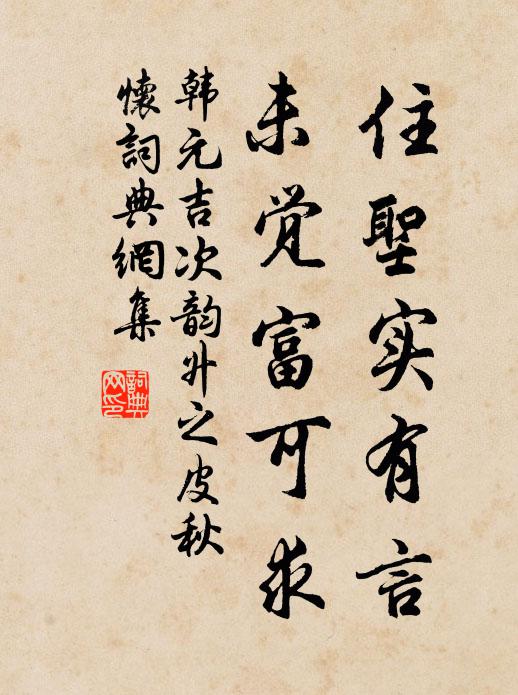 住聖实有言
未觉富可求
韩元吉次韵外之皮秋
懷詞典網集
詞典
网印